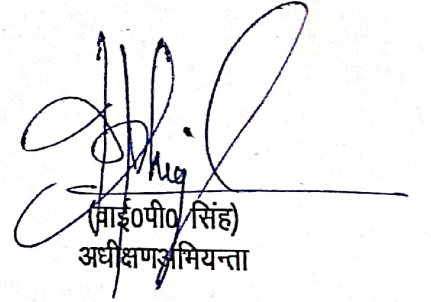 (वाई0पी0 सिंह)
अधीक्षणअभियन्ता